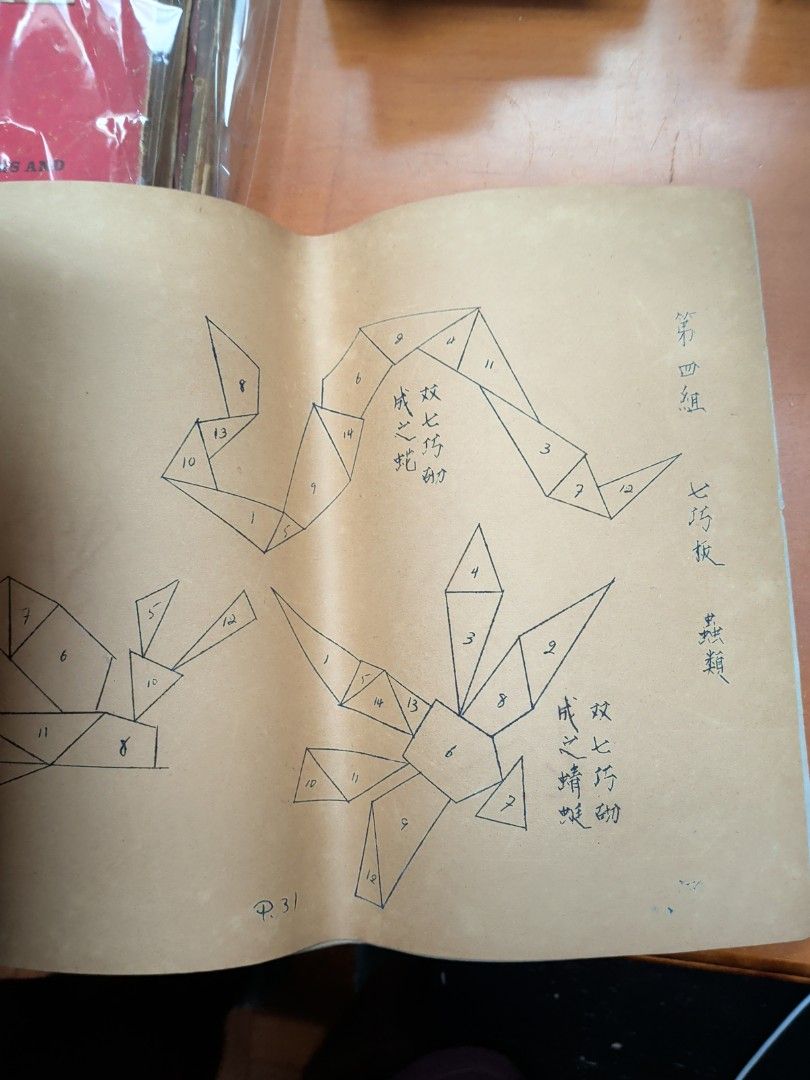 第四組 七巧板 蟲類
双七巧砌
成之蛇
8
13
10
1
5
9
14
6
2
4
11
3
7
12
双七巧砌
成之蜻蜓
4
3
2
8
1
5
14
13
6
10
11
7
9
12
7
6
5
12
10
11
8
P.31
GS AND